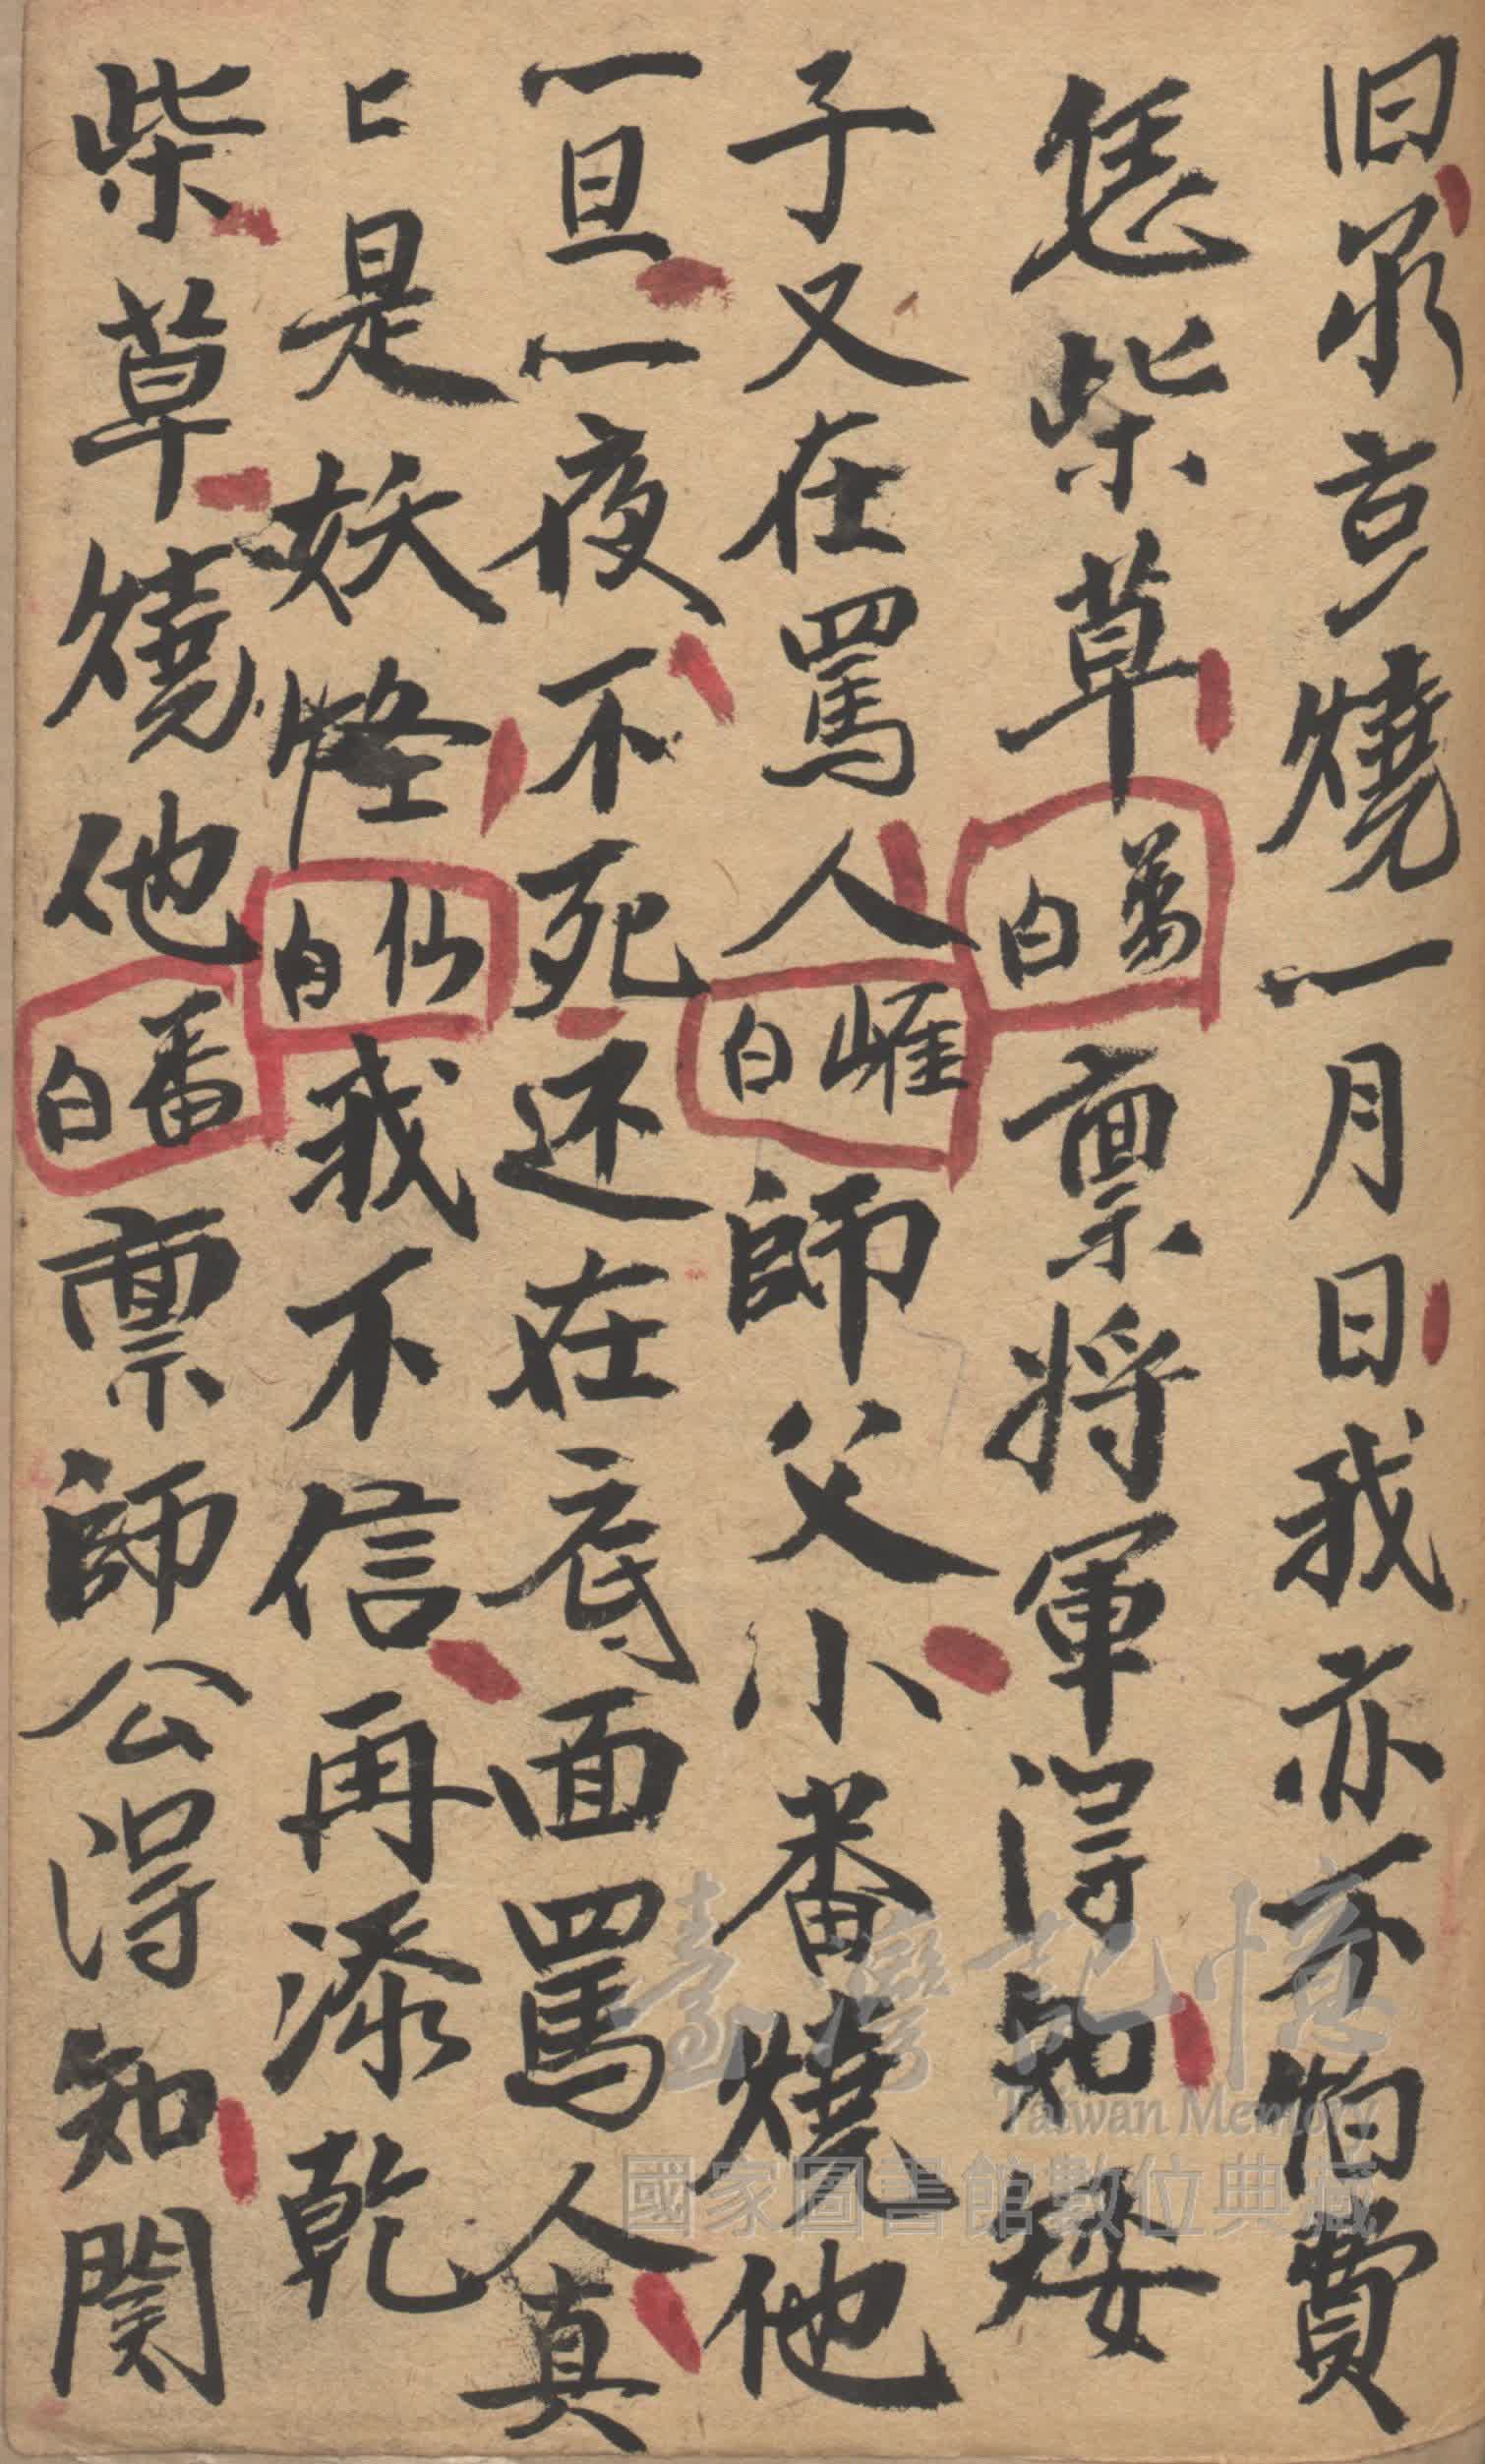 旧尔去燒一月日我亦不怕費
恁柴草萬白禀將軍淂知矮
子又在罵人崕白師父小番燒他
一旦一夜不死还在底面罵人真
匕是妖怪仙白我不信再添乾
柴草燒他番白禀師公淂知関
臺灣記憶
Taiwan Memory
國家圖書館數位典藏